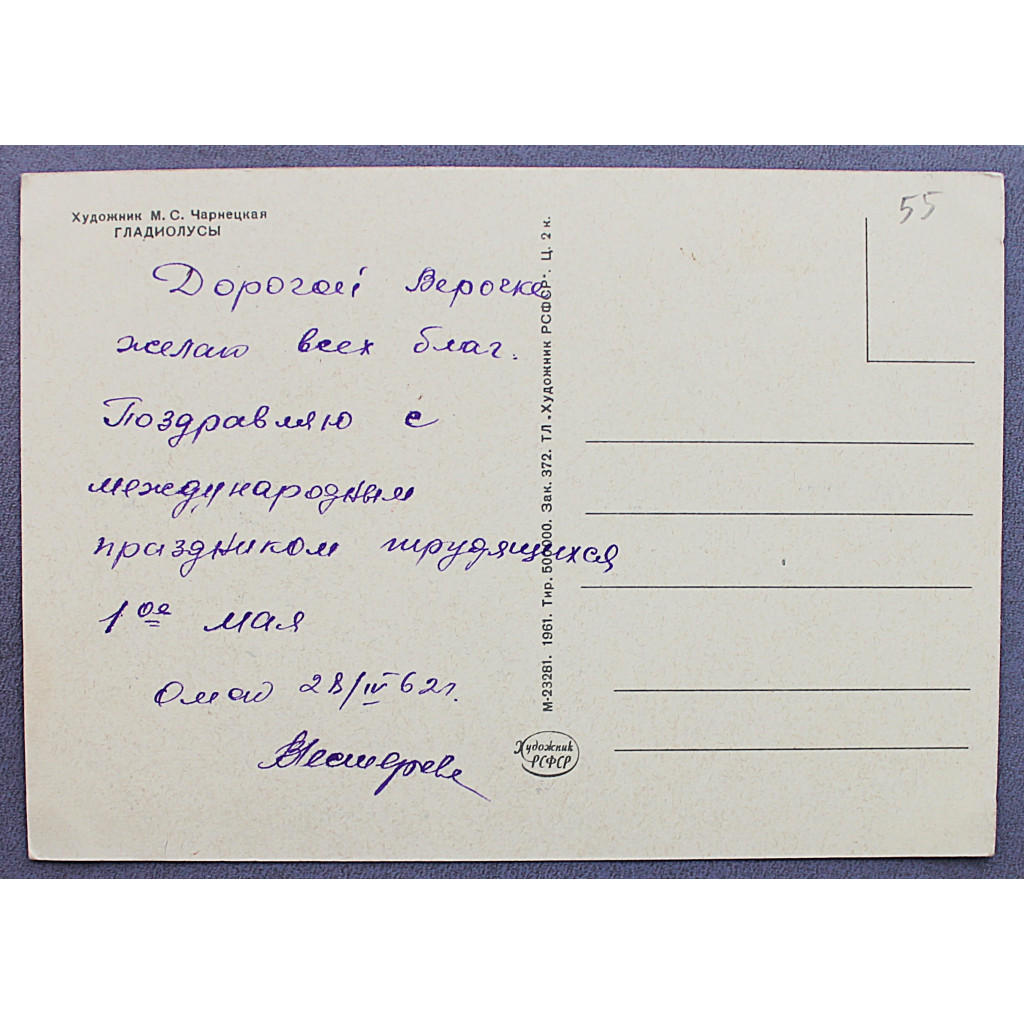 Художник М. С. Чарнецкая
ГЛАДИОЛУСЫ
55
Дорогой Верочке
желаю всех благ.
Поздравляю с
международным
праздником трудящихся
1ое мая
28/IV 62 г.
М-23281. 1961. Тир. 500000. Зак. 372. ТЛ „Художник РСФСР". Ц. 2 к.
Художник
РСФСР